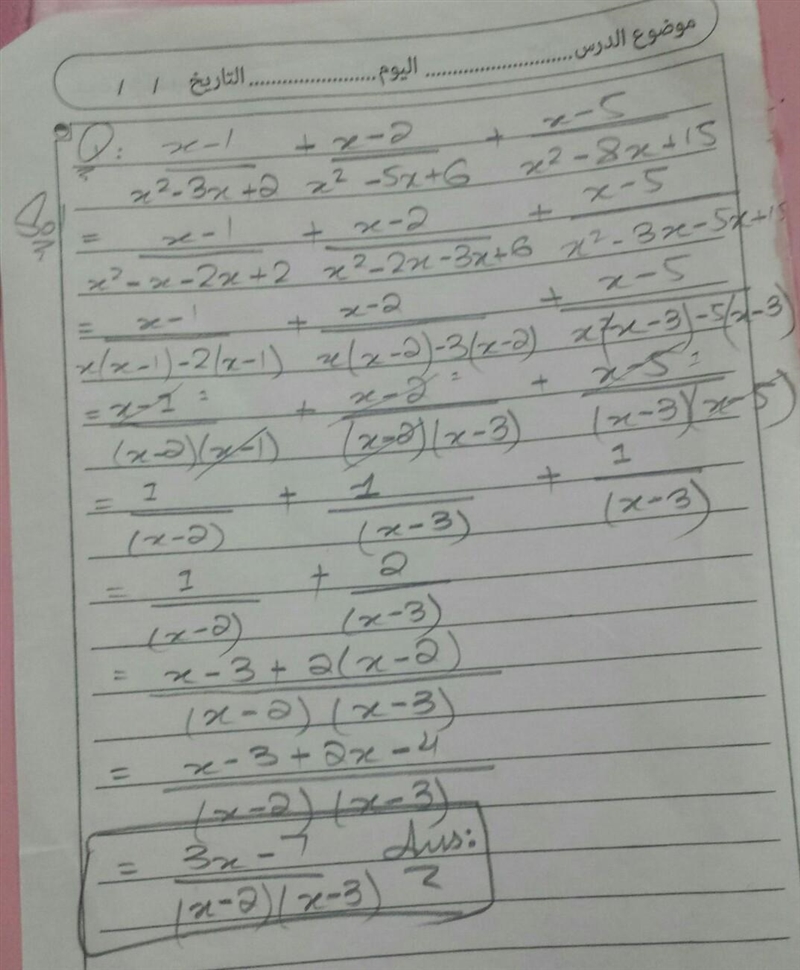 موضوع الدرس ........................ اليوم .................... التاريخ / /
Q: x-1/x²-3x+2 + x-2/x²-5x+6 + x-5/x²-8x+15
Sol
= x-1/x²-x-2x+2 + x-2/x²-2x-3x+6 + x-5/x²-3x-5x+15
= x-1/x(x-1)-2(x-1) + x-2/x(x-2)-3(x-2) + x-5/x(x-3)-5(x-3)
= x-1/(x-2)(x-1) + x-2/(x-2)(x-3) + x-5/(x-3)(x-5)
= 1/(x-2) + 1/(x-3) + 1/(x-3)
= 1/(x-2) + 2/(x-3)
= x-3+2(x-2)/(x-2)(x-3)
= x-3+2x-4/(x-2)(x-3)
= 3x-7/(x-2)(x-3) Ans: